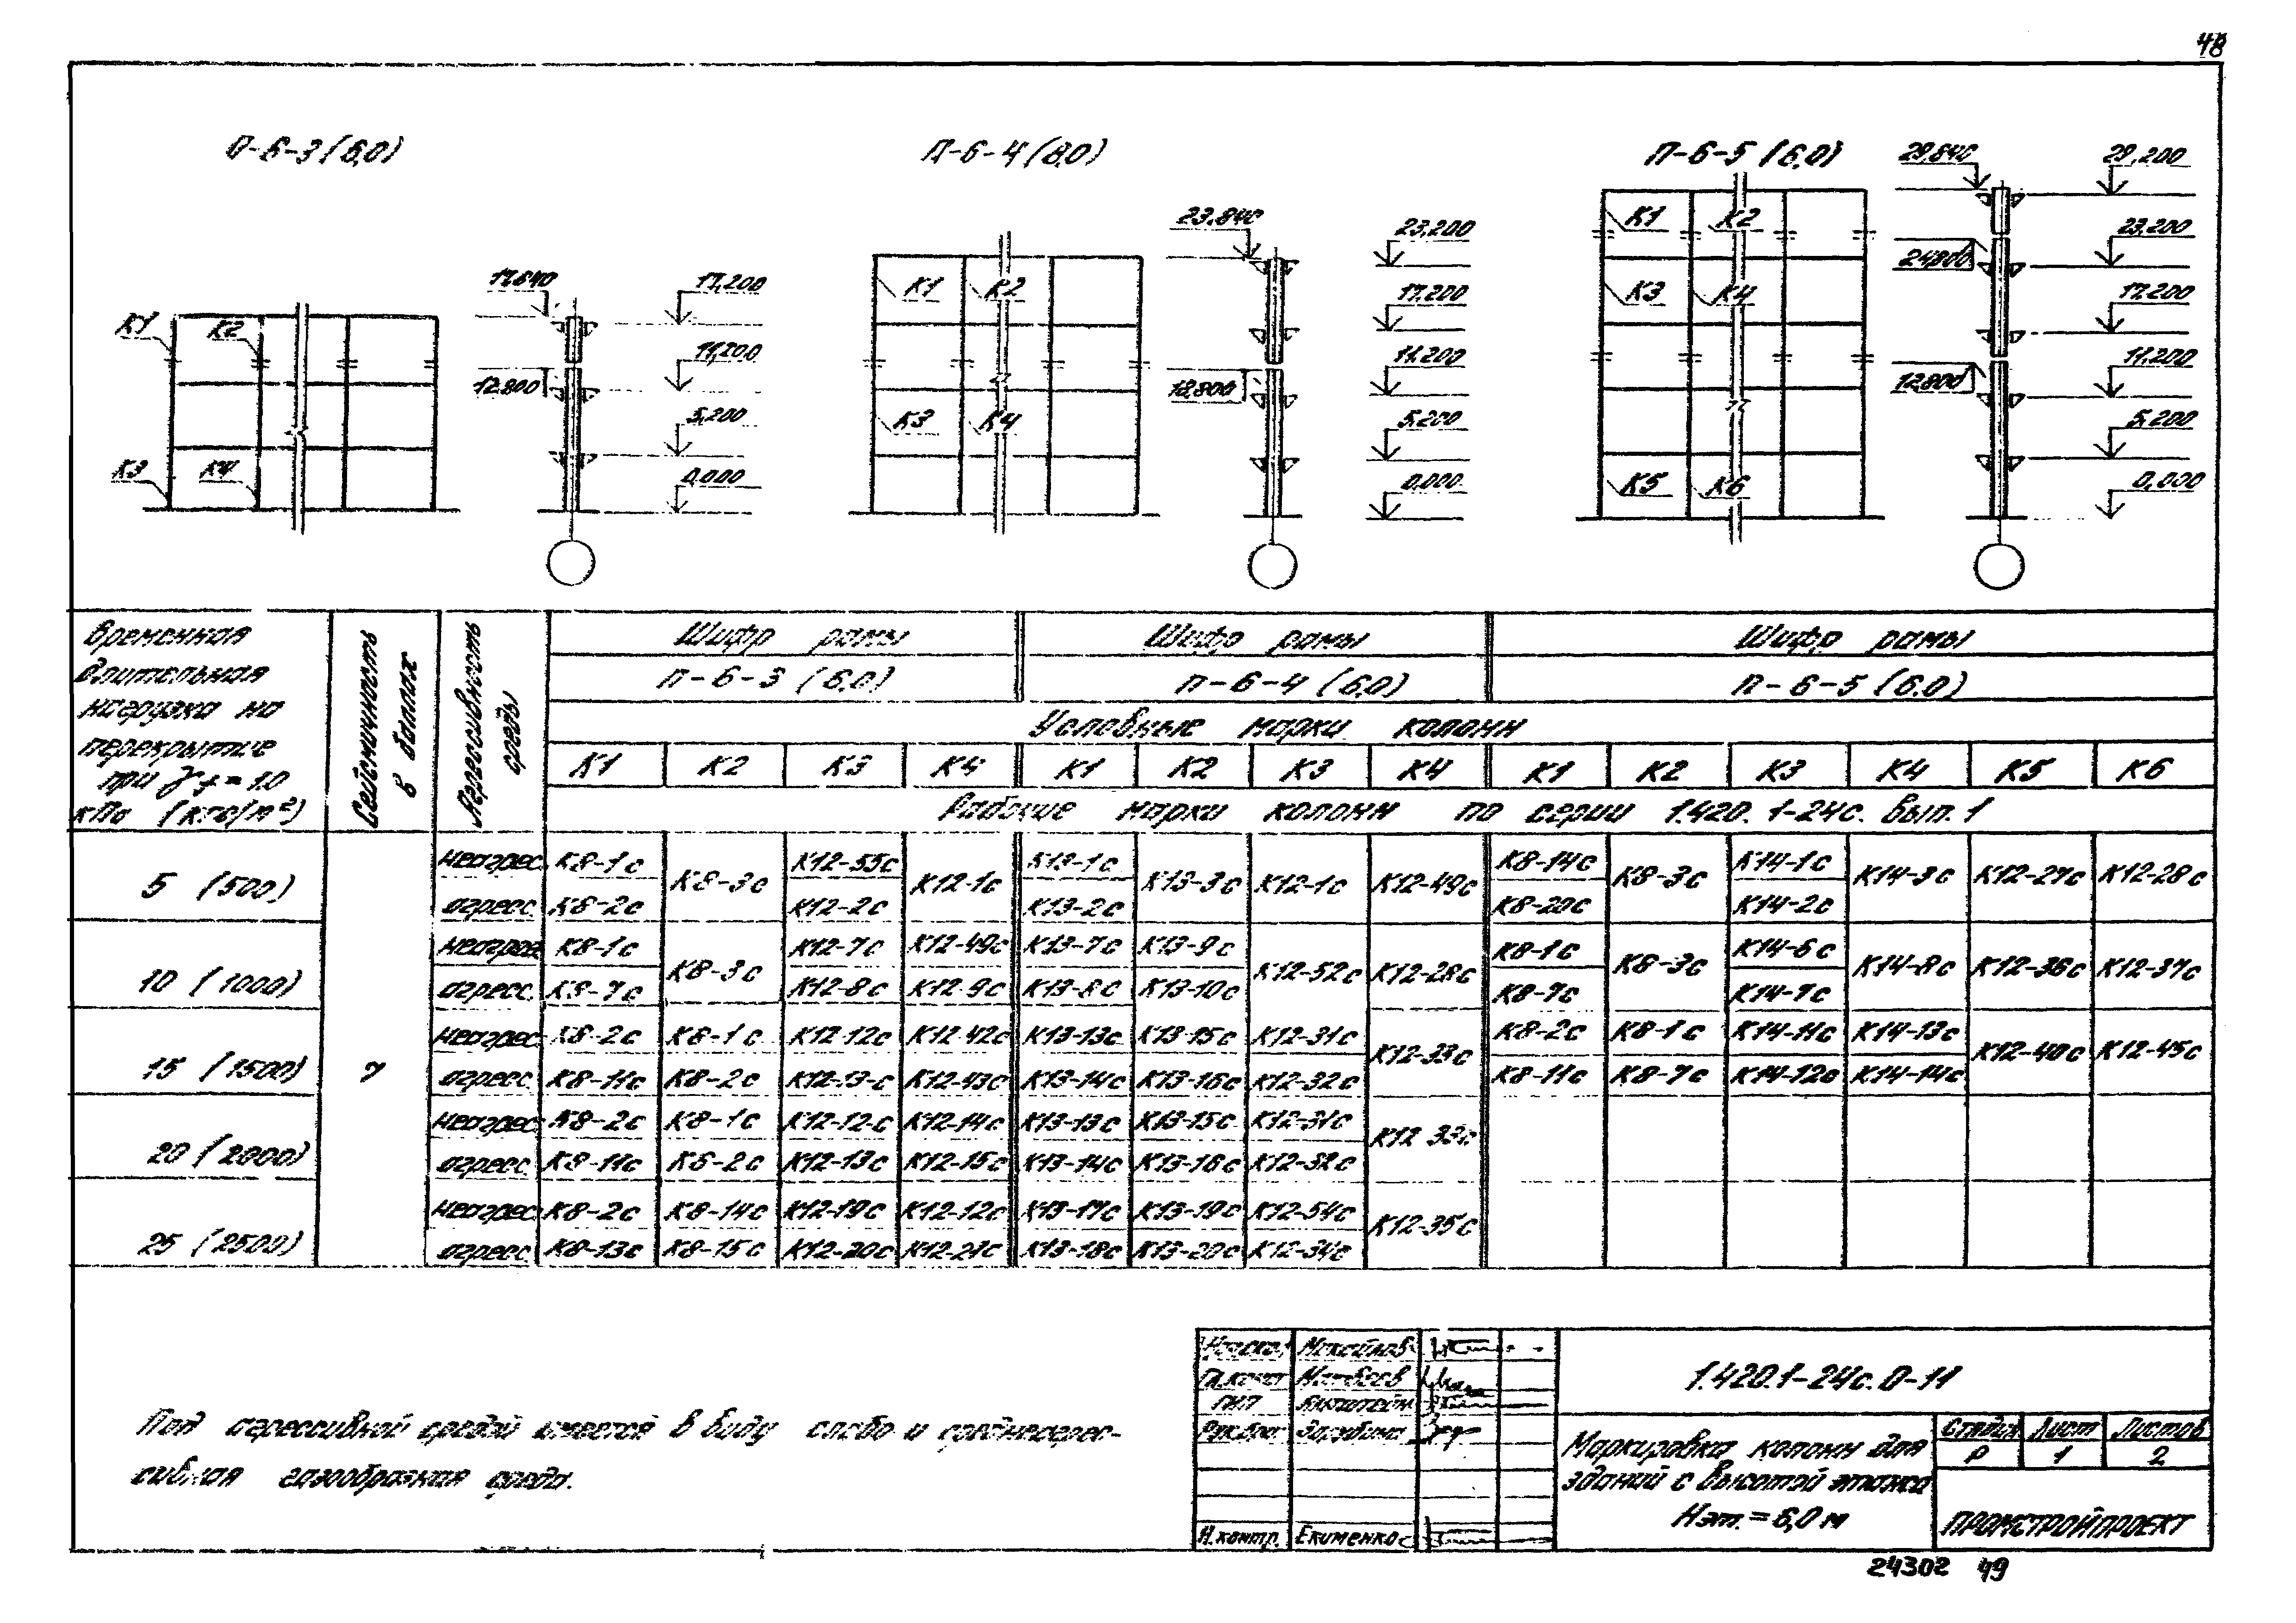 48
П-6-3 (6,0)
П-6-4 (6,0)
П-6-5 (6,0)
К1
К2
К3
К4
17,640
12,800
17,200
11,200
5,200
0,000
К1
К2
К3
К4
23,840
12,800
23,200
17,200
11,200
5,200
0,000
К1
К2
К3
К4
К5
К6
29,840
24,800
12,800
29,200
23,200
17,200
11,200
5,200
0,000
Временная длительная нагрузка на перекрытие при γf = 1.0 кПа (кгс/м²)
Сейсмичность в баллах
Агрессивность среды
Шифр рамы
Шифр рамы
Шифр рамы
П-6-3 (6,0)
П-6-4 (6,0)
П-6-5 (6,0)
Условные марки колонн
К1 К2 К3 К4 К1 К2 К3 К4 К1 К2 К3 К4 К5 К6
Рабочие марки колонн по серии 1.420.1-24с. Вып. 1
5 (500)
неагрес. К8-1с К8-3с К12-55с К12-1с К13-1с К13-3с К12-1с К12-49с К8-14с К8-3с К14-1с К14-3с К12-27с К12-28с
агресс. К8-2с К12-2с К13-2с К8-20с К14-2с
10 (1000)
неагрес. К8-1с К8-3с К12-7с К12-49с К13-7с К13-9с К12-52с К12-28с К8-1с К8-3с К14-6с К14-8с К12-36с К12-37с
агресс. К8-7с К12-8с К12-9с К13-8с К13-10с К8-7с К14-7с
15 (1500)
7
неагрес. К8-2с К8-1с К12-12с К12-42с К13-13с К13-15с К12-31с К12-33с К8-2с К8-1с К14-11с К14-13с К12-40с К12-45с
агресс. К8-11с К8-2с К12-13-с К12-43с К13-14с К13-16с К12-32с К8-11с К8-7с К14-12с К14-14с
20 (2000)
неагрес. К8-2с К8-1с К12-12-с К12-14с К13-13с К13-15с К12-31с К12-33с
агресс. К8-11с К8-2с К12-13с К12-15с К13-14с К13-16с К12-32с
25 (2500)
неагрес. К8-2с К8-14с К12-19с К12-12с К13-17с К13-19с К12-54с К12-35с
агресс. К8-13с К8-15с К12-20с К12-21с К13-18с К13-20с К12-34с
Под агрессивной средой имеется в виду слабо и среднеагрес-
сивная газообразная среда.
Гл.конст Матвеев
ГИП
Рук.бриг Зарубина
Н.контр. Екименко
1.420.1-24с.0-11
Маркировка колонн для
зданий с высотой этажа
Нэт. = 6,0 м
Стадия Лист Листов
Р 1 2
ПРОМСТРОЙПРОЕКТ
24302 49